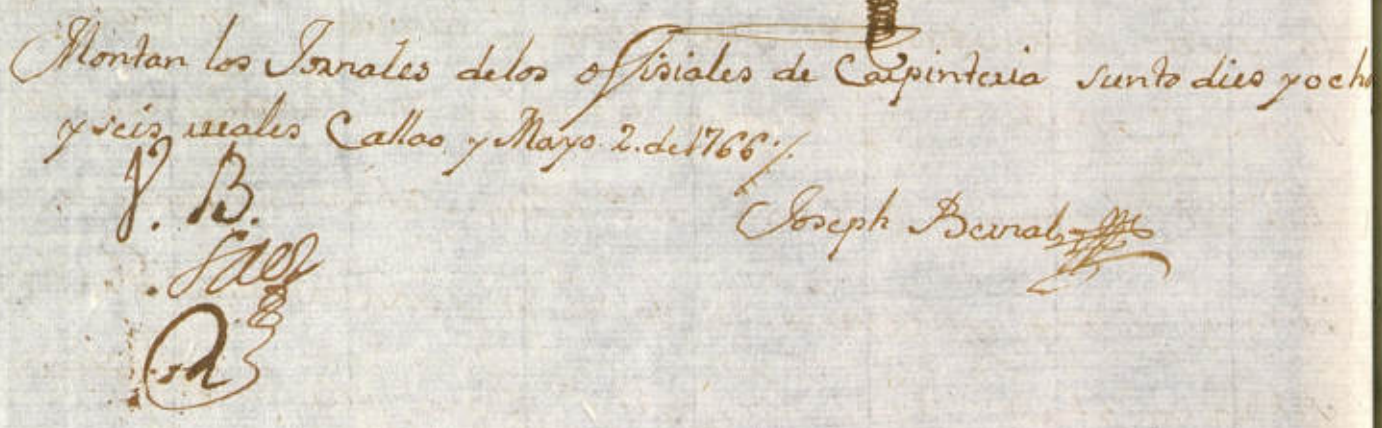 Montan los Jornales delos offisiales de Carpinteria siento dies y ocho
y seis reales Callao y Mayo 2. de 1766 ./.
Joseph Bernal
V. B.
Saez